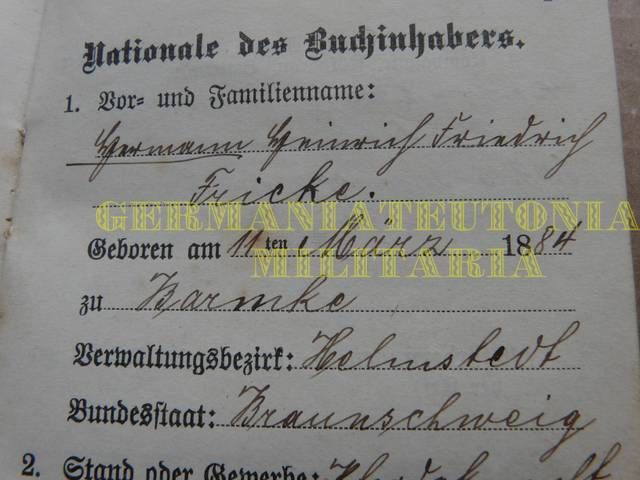 Nationale des Buchinhabers.
1. Vor- und Familienname:
Hermann Heinrich Friedrich
Fricke.
GERMANIATEUTONIA
Geboren am 11ten März 1884
MILITARIA
zu Barmke
Verwaltungsbezirk: Helmstedt
Bundesstaat: Braunschweig
2. Stand oder Gewerbe: